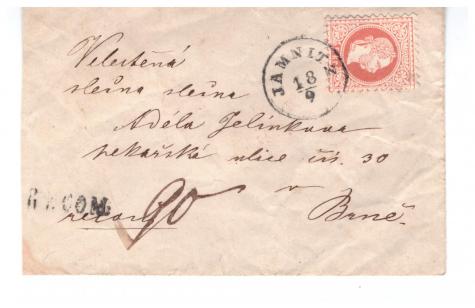 JAMNITZ
18/9
Velectěná
slečna slečna
Adéla Jelínkova
pekařská ulice čís. 30
v
Brně.
RECOM.
recom
90